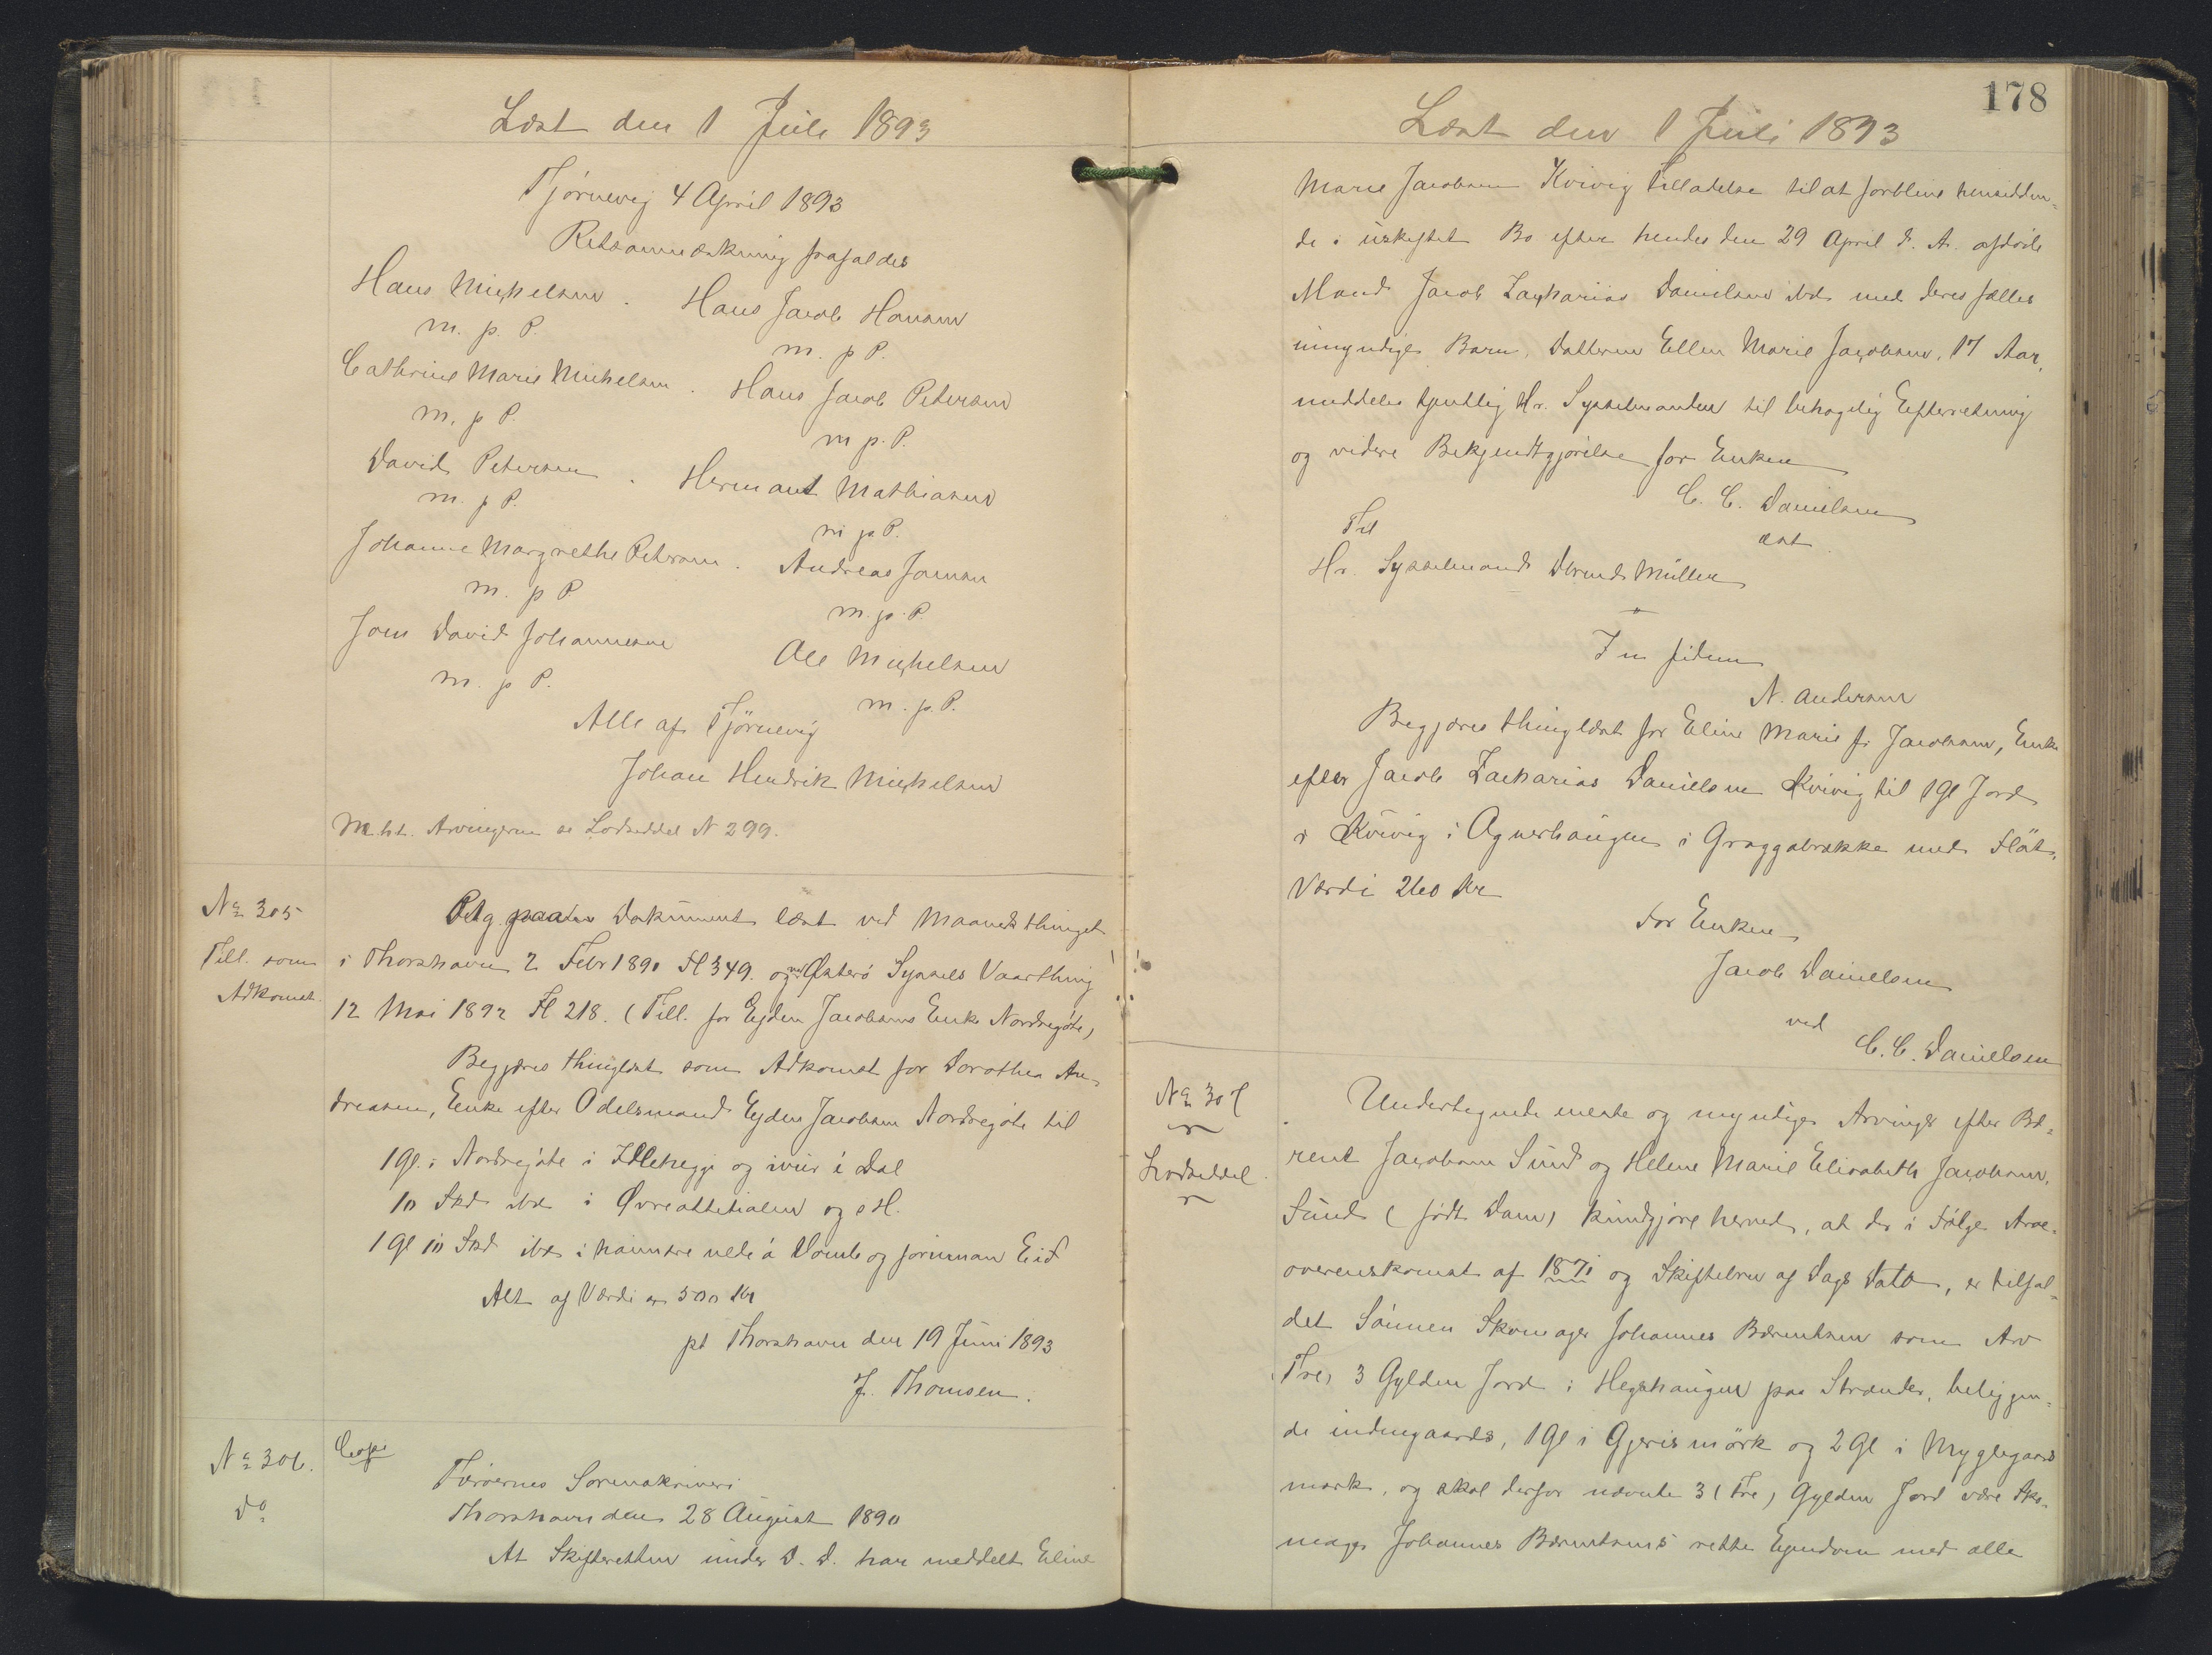 Læst den 1 Juli 1893
Tjørnevig 4 April 1893
Retsanmærkning frafaldes
Hans Michelsen . Hans Jacob Hansen
m. p. P. m. p P.
Cathrine Marie Michelsen . Hans Jacob Petersen
m. p P. m p. P.
David Petersen . Hermant Mathiasen
m. p P. m p. P.
Johanne Margrethe Petersen . Andreas Jansen
m. p P m. p. P
Joen David Johannesen Ole Michelsen
m. p P. m. p. P.
Alle af Tjørnevig
Johan Hendrik Michelsen
M. h. t. Arvingerne se Lodseddel N 299.
No 305
Till. som
Adkomst.
Petg. paa Dokument læst ved Maanedsthinget
i Thorshavn 2 Febr 1890 Fl 349. og ved Østerø Syssels Vaarthing
12 Mai 1892 Fl 218. (Till. for Eyden Jacobsens Enke Nordregøte)
Begjæres thinglæst som Adkomst for Dorothea An-
dreasen, Enke efter Odelsmand Eyden Jacobsen Nordregøte til
1 Gl. i Nordregøte i Idleheggj og ivur i Dal
10 Skd ibd i Øvreattetialen og s H.
1 Gl 10 Skd ibd i nede á og Eid
Alt af Værdi 500 Kr
pt Thorshavn den 19 Juni 1893
J. Thomsen.
No 306.
Do
Copi
Færøernes Sorenskriveri
Thorshavn den 28 August 1890
At Skifteretten under D. D. har meddelt Eline
178
Læst den 1 Juli 1893
Marie Jacobsen Kvivig Tilladelse til at forblive hensidden-
de i uskiftet Bo efter hendes den 29 April d. A. afdøde
Mand Jacob Zacharias Danielsen ibd med deres fælles
umyndige Barn, Datteren Ellen Marie Jacobsen, 17 Aar,
meddeles tjentlig Hr. Sysselmanden til behagelig Efterretning
og videre Bekjendtgjørelse for Enken
C. C. Danielsen
cst
Til
Hr. Sysselmand Müller
"
In fidem
N. Andersen
Begjæres thinglæst for Eline Marie f. Jacobsen, Enke
efter Jacob Zacharias Danielsen Kvivig til 1 Gl Jord
i Kvivig i Agnerhaugen i Graggabrekke med Flat.
Værdi 260 Kr
For Enken
Jacob Danielsen
ved
C. C. Danielsen
No 307
Lodseddel.
Undertegnede eneste og myndige Arvinger efter Bæ-
rent Jacobsen Sund og Helene Marie Elisabeth Jacobsen,
Sund (født Dam) kundgjøre herved, at der i Følge Arve-
overenskomst af 1871 og Skiftebrev af Dags Dato, er tilfal-
det Sønnen Skomager Johannes Bærentsen som Arv
(Tre) 3 Gylden Jord i Hegshaugen paa Strænder, beliggen-
de indengaards, 1 Gl i Gjerismörk og 2 Gl i Myglegaards
mark, og skal derfor nævnte 3 (Tre) Gylden Jord være Sko-
mager Johannes Bærentsens rette Ejendom med alle